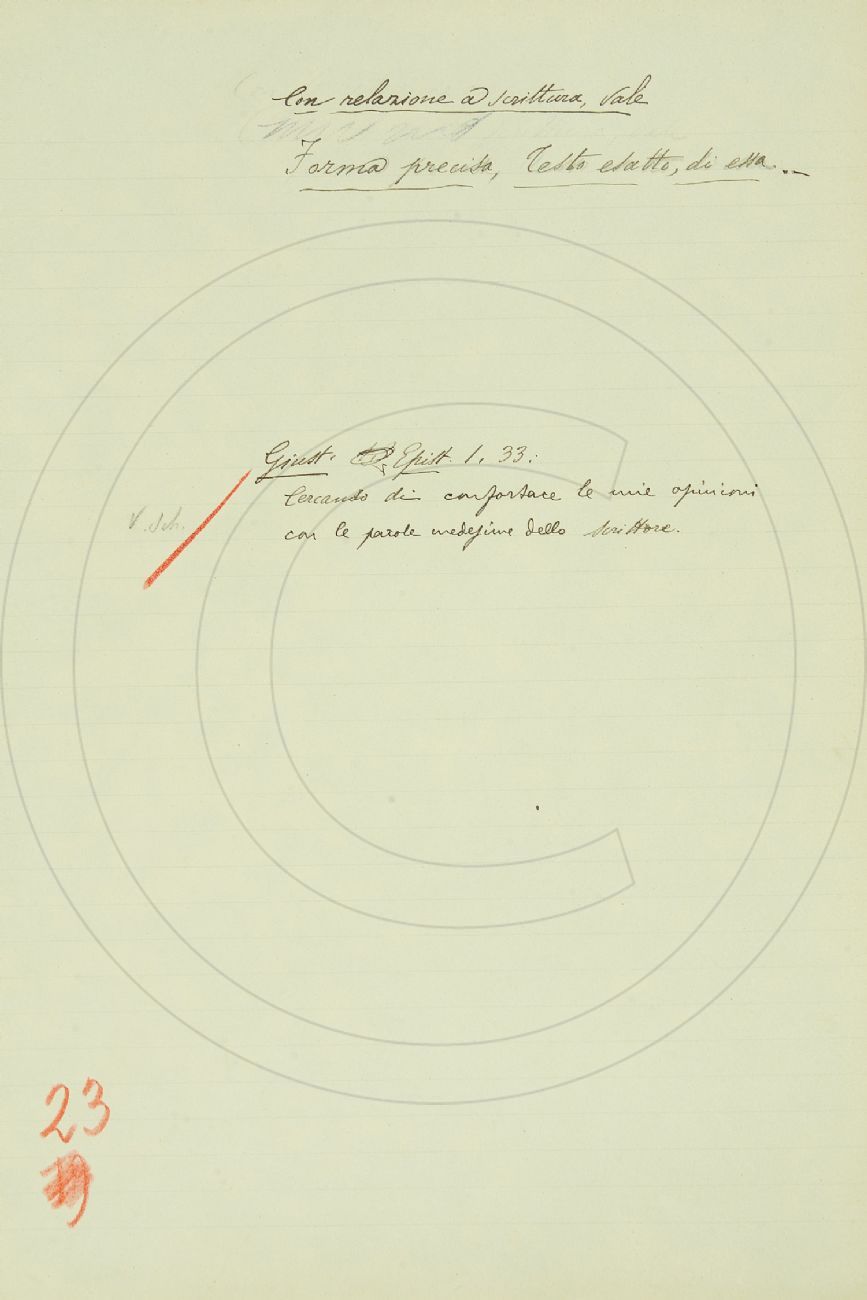 Con relazione a scrittura, vale
Forma precisa, Testo esatto, di essa. –
Giust. Epist. 1. 33:
Cercando di confortare le mie opinioni
V. Sch.
con le parole medesime dello scrittore.
23